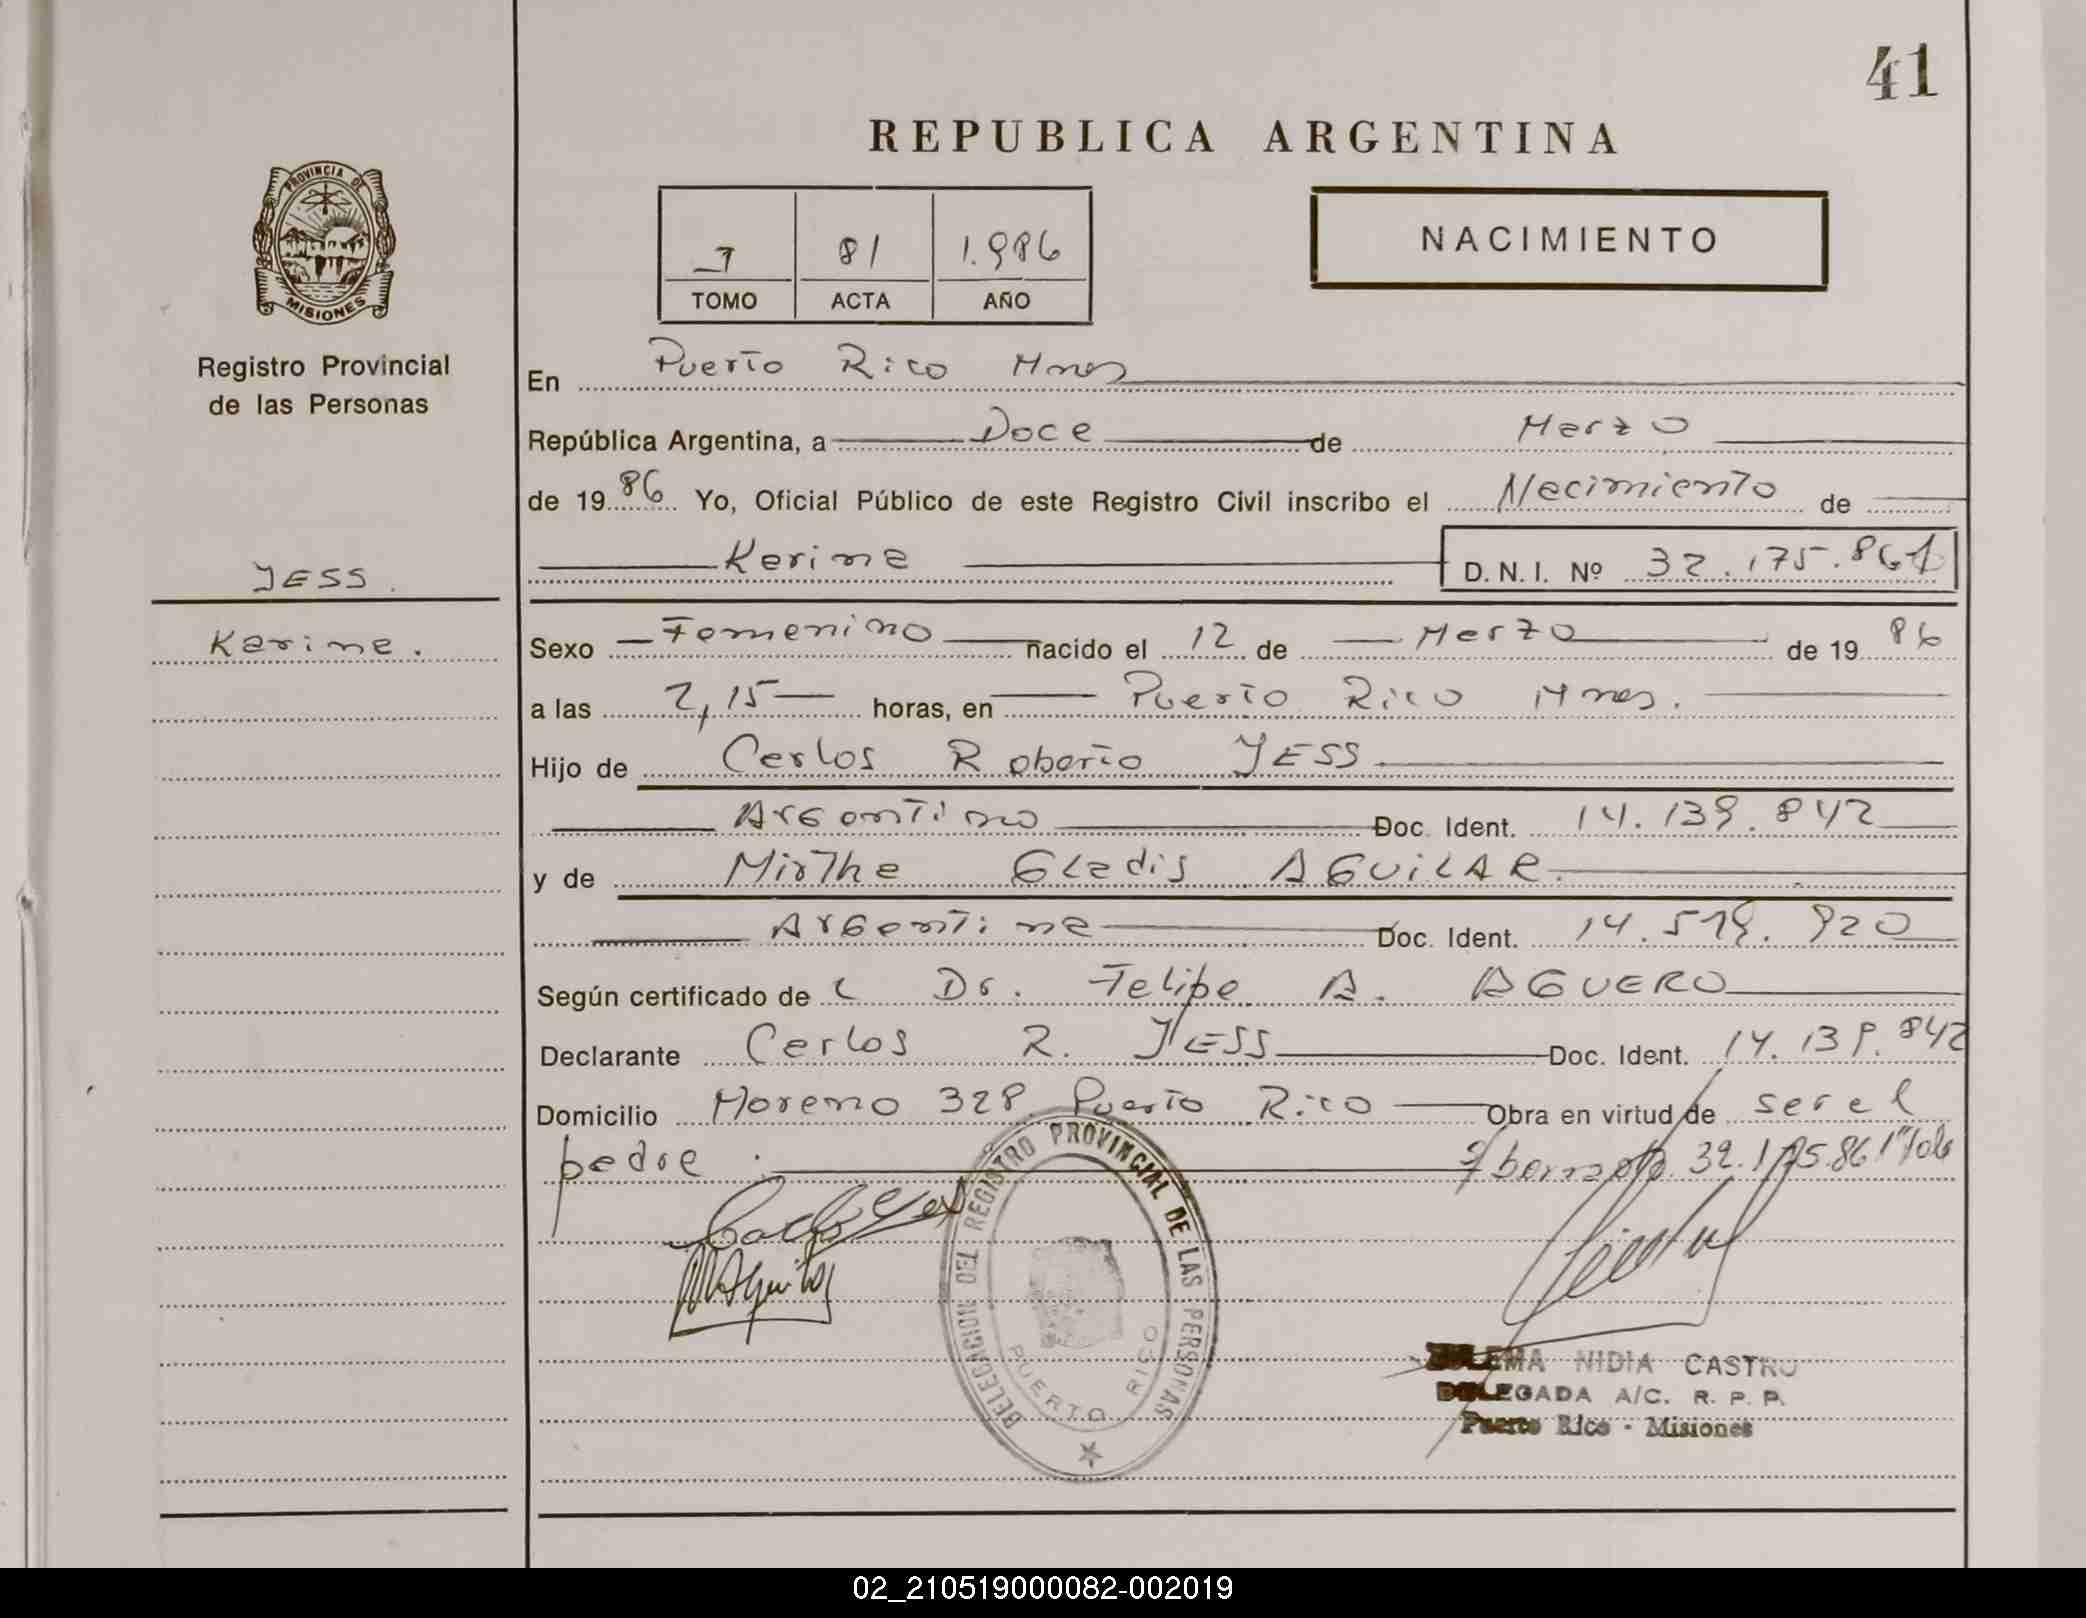 41
REPUBLICA ARGENTINA
PROVINCIA DE
MISIONES
Registro Provincial
de las Personas
1 81 1.986
TOMO ACTA AÑO
NACIMIENTO
En Puerto Rico Mnes
República Argentina, a Doce de Marzo
de 1986 Yo, Oficial Público de este Registro Civil inscribo el Nacimiento de
Karina D. N. I. Nº 32.175.861
YESS.
Karina.
Sexo Femenino nacido el 12 de Marzo de 1986
a las 2,15 horas, en Puerto Rico Mnes.
Hijo de Carlos Roberto YESS
Argentino Doc. Ident. 14.139.842
y de Mirtha Gladis AGUILAR.
Argentina Doc. Ident. 14.519.920
Según certificado de Dr. Felipe A. AGUERO
Declarante Carlos R. YESS Doc. Ident. 14.139.842
Domicilio Moreno 328 Puerto Rico Obra en virtud de ser el
padre. s/borrado 32.175.861 Vale
DELEGACION DEL REGISTRO PROVINCIAL DE LAS PERSONAS
PUERTO RICO
NIDIA CASTRO
DELEGADA A/C. R. P. P.
Puerto Rico - Misiones
02_210519000082-002019